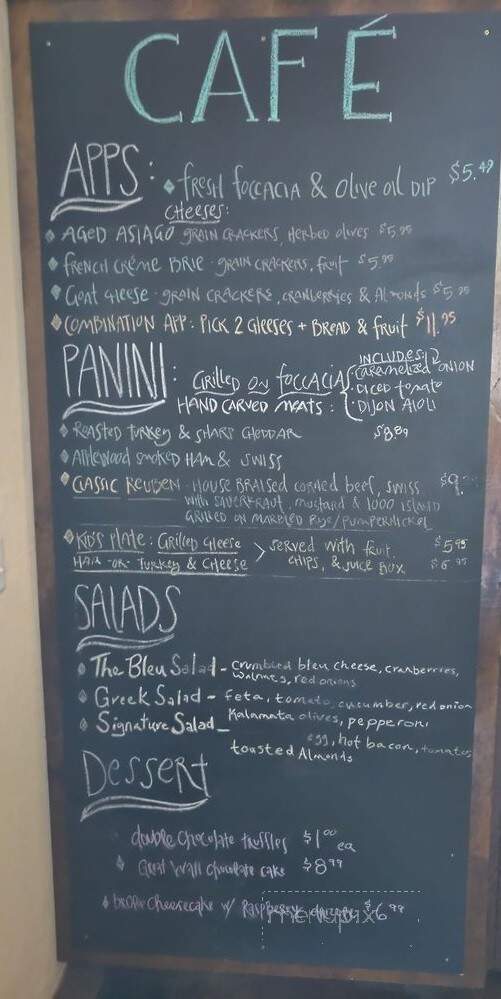 CAFÉ
APPS: fresh foccacia & olive oil DIP $5.49
CHEESES:
AGED ASIAGO GRAIN CRACKERS, Herbed olives $5.95
french Créme BRIE - GRAIN CRACKERS, fruit $5.95
Goat cheese - GRAIN CRACKERS, CRANBERRIES & Almonds $5.95
COMBINATION APP: PICK 2 Cheeses + BREAD & fruit $11.95
PANINI: GRILLED ON foccacia
INCLUDES:
caramelized ONION
DICED tomato
DIJON AIOLI
HAND CARVED MEATS:
Roasted turkey & SHARP CHEDDAR $8.89
Applewood smoked HAM & SWISS
CLASSIC REUBEN - HOUSE BRAISED corned beef, SWISS $9.
with SAUERKRAUT, mustard & 1000 island
GRILLED ON MARBLED RYE/PUMPERNICKEL
KID'S PLATE: GRILLED Cheese
HAM -OR- TURKEY & CHEESE
served with fruit, $5.95
CHIPS, & JUICE BOX $6.95
SALADS
The Bleu Salad - crumbled bleu cheese, cranberries,
walnuts, red onions
Greek Salad - feta, tomato, cucumber, red onion
Kalamata olives, pepperoni
Signature Salad - egg, hot bacon, tomatoes
toasted Almonds
Dessert
double chocolate truffles $1.00 ea
Great Wall chocolate cake $8.99
cheesecake w/ Raspberry $6.99
menupix